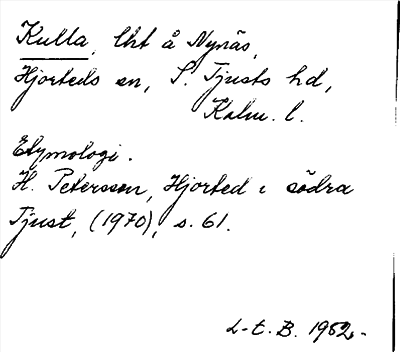 Kulla, lht å Nynäs,
Hjorteds sn, S. Tjusts hd,
Kalm. l.
Etymologi.
H. Petersson, Hjorted i södra
Tjust, (1970), s. 61.
L-t. B. 1982.